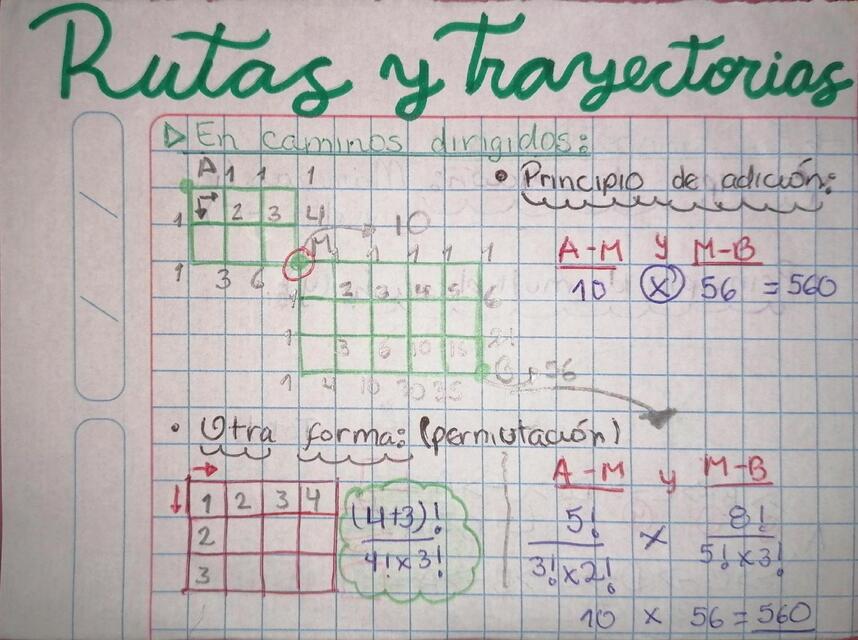 Rutas y Trayectorias
▷ En caminos dirigidos:
A 1 1 1
• Principio de adición:
1 2 3 4
M → 10
1 3 6
1 1 1 1 1
A-M y M-B
10 x 56 = 560
1 2 3 4 5 6
1 3 6 10 15 21
B → 56
1 4 10 20 35
• Otra forma: (permutación)
A-M y M-B
1 2 3 4
2
3
(4+3)!
4! x 3!
5! x 8!
3! x 2! 5! x 3!
10 x 56 = 560